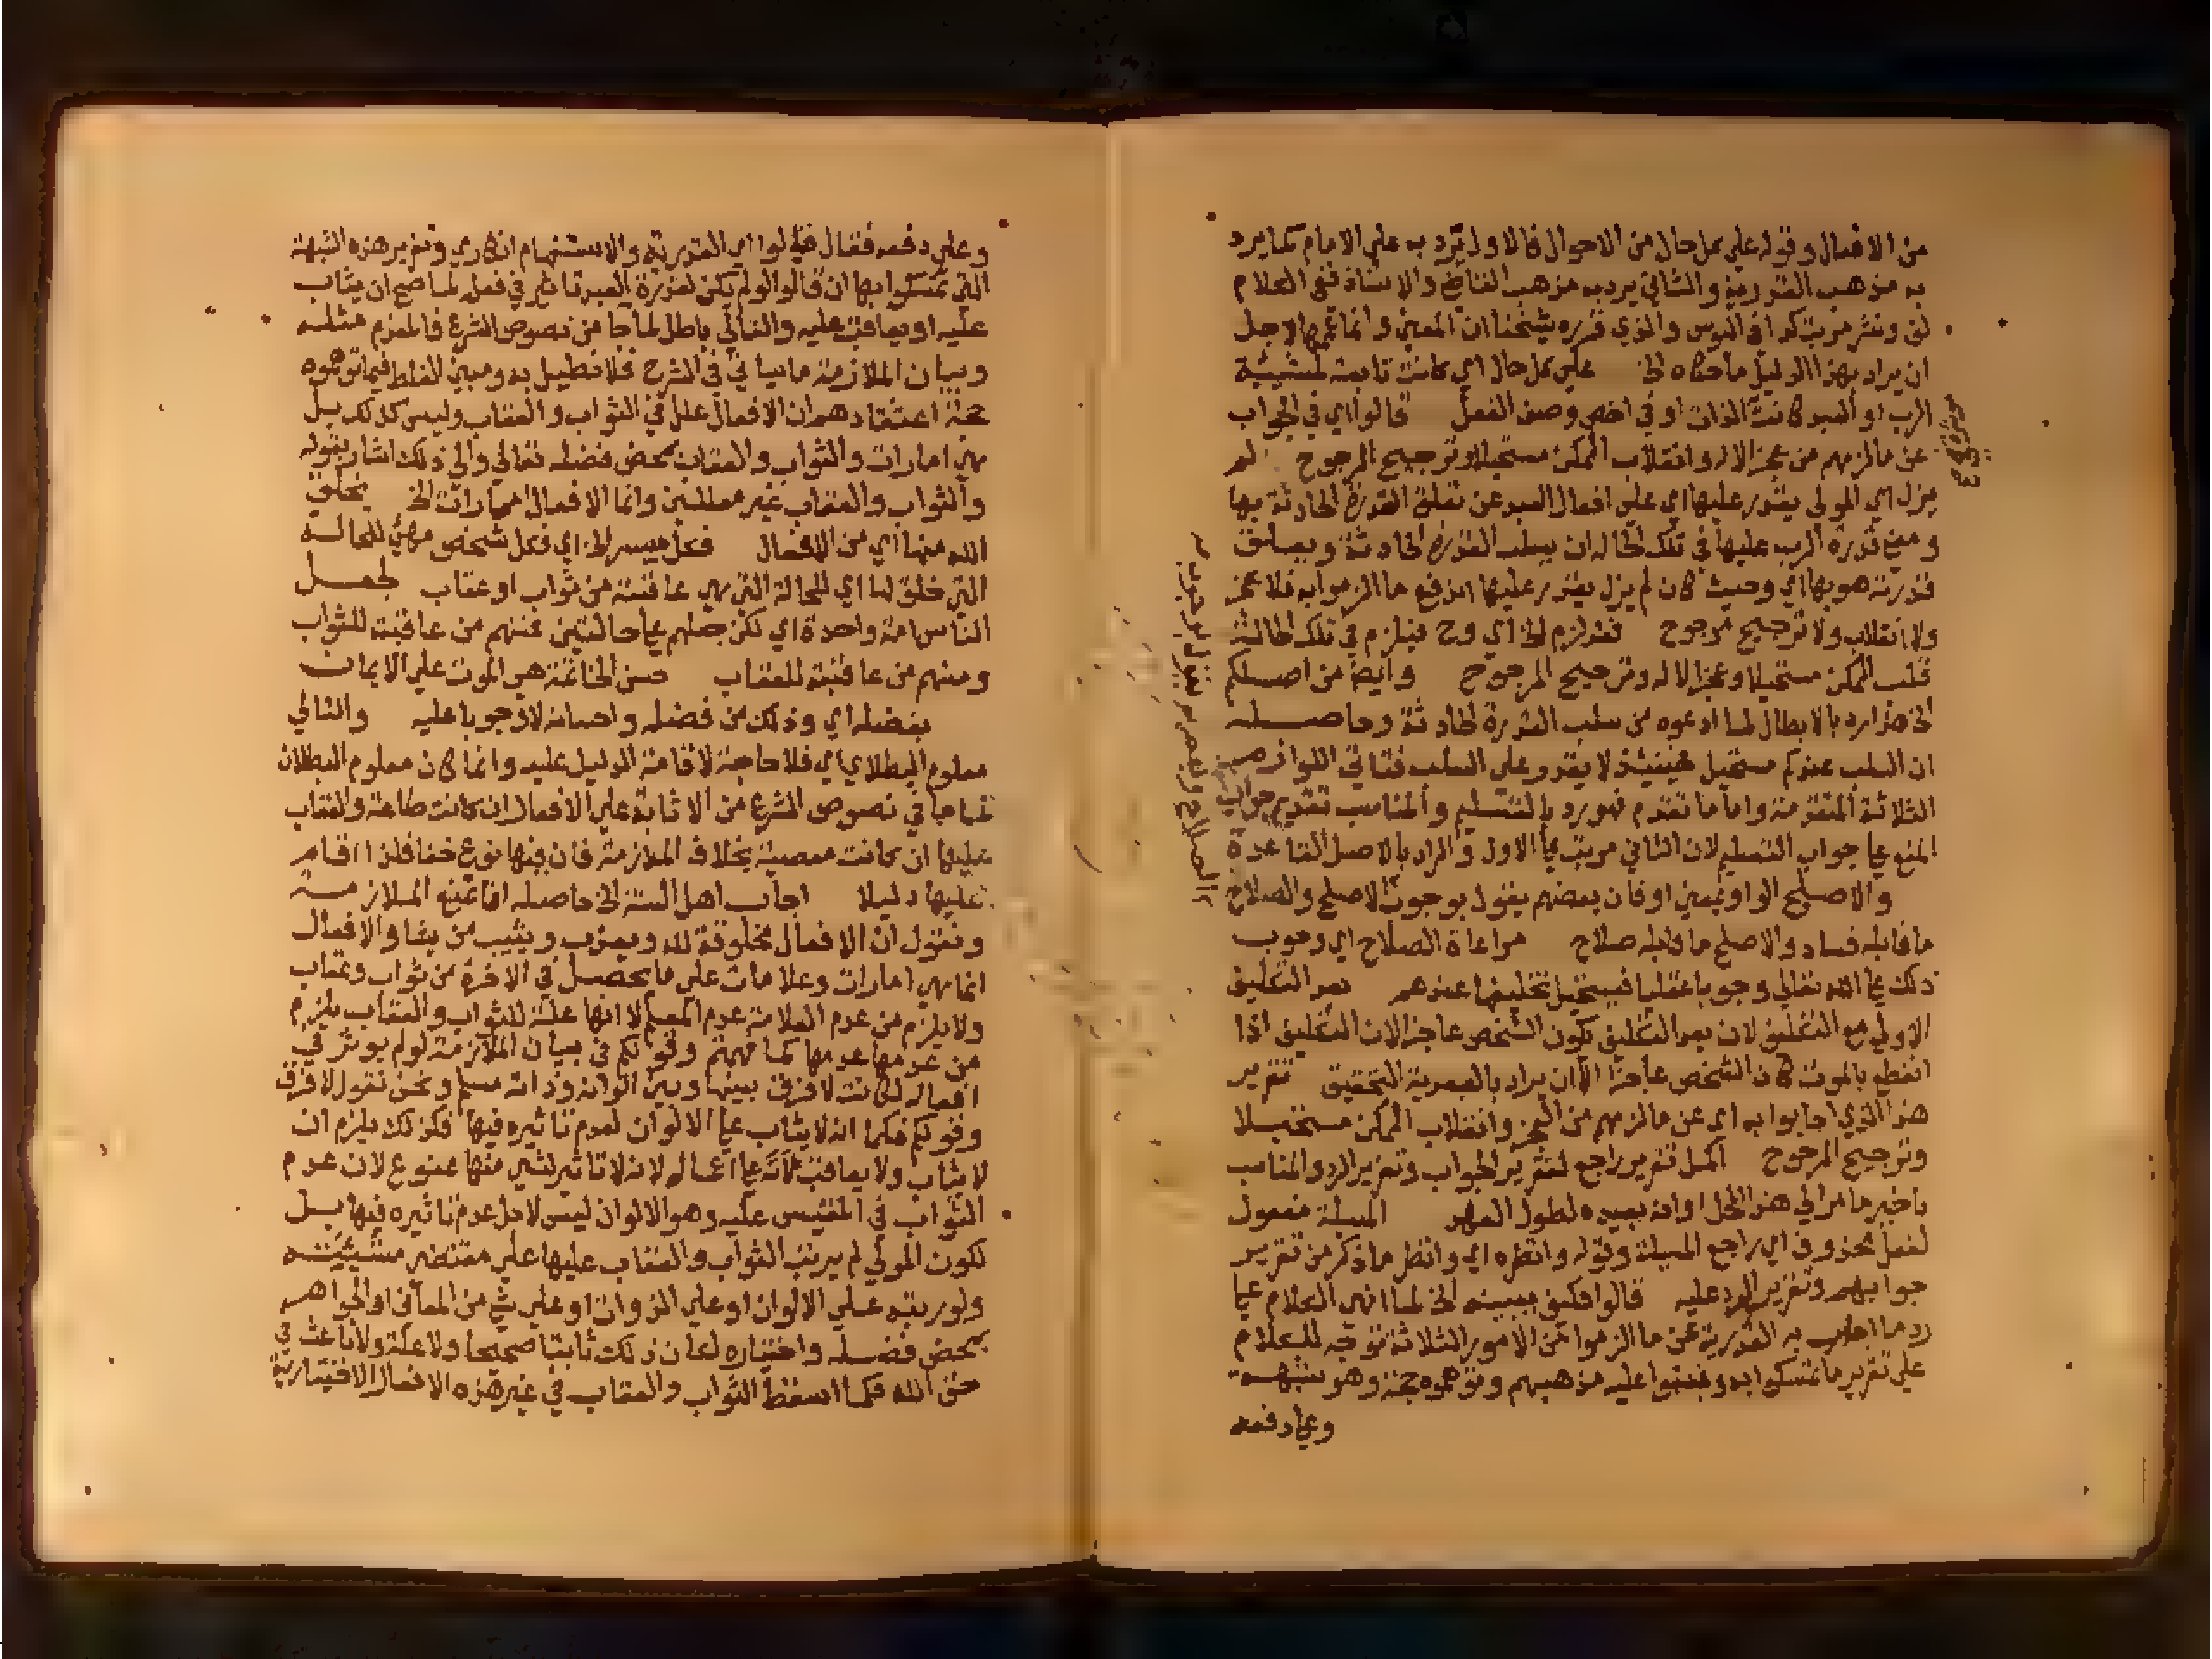 من الافعال وقوله علي كل حال من الاحوال فالاول يرد به علي الامام كما يرد
به مذهب القدرية والثاني يرد به مذهب القاضي والاستاذ ففي الكلام
لف ونشر مرتب كذا في اليوس والذي قرره شيخنا ان المعين وانما عمم لاجل
ان يراد بهذا الدليل ما حكاه الخ علي كل حال اي كانت تابعة لمشيئة
الرب او العبد كانت الذات او في اخص وصف الفعل قالوا اي في الجواب
عن ما لزمهم من عجز الاله وانقلاب الممكن مستحيلا وترجيح المرجوح لم
يزل اي المولي يقدر عليها اي علي افعال العبد عن تعلق القدرة الحادثة بها
ومنع قدرة الرب عليها في تلك الحالة ان يسلب القدرة الحادثة ويعلق
قدرته هو بها اي وحيث كان لم يزل يقدر عليها اندفع ما الزموا به فلا عجز
ولا انقلاب ولا ترجيح مرجوح فقد لزم الخ اي وح فيلزم في تلك الحالة
قلب الممكن مستحيلا وعجز الاله وترجيح المرجوح وايضا من اصلكم
الخ هذا رد بالابطال لما ادعوه من سلب القدرة الحادثة وحاصله
ان السلب عندكم مستحيل فحينئذ لا يقدر علي السلب فتاتي اللوازم
الثلاثة المتقدمة واما ما تقدم فهو رد بالتسليم والمناسب تقديم جواب
المنع علي جواب التسليم لان الثاني مرتب علي الاول والمراد بالاصل القاعدة
والاصلح الواو بمعني او فان بعضهم يقول بوجوب الاصلح والصلاح
ما قابله فساد والاصلح ما قابله صلاح مراعاة الصلاح اي وجوب
ذلك علي الله تعالي وجوبا عقليا فيستحيل تخلفها عندهم بعد التكليف
الاولي مع التكليف لان بعد التكليف يكون الشخص عاجزا لان التكليف اذا
انقطع بالموت كان الشخص عاجزا الا ان يراد بالبعدية التحقيق تقرير
هذا الذي اجابوا به اي عن ما لزمهم من العجز وانقلاب الممكن مستحيلا
وترجيح المرجوح اكمل تقرير راجع لتقرير الجواب وتقرير الرد والمناسب
تاخير ما مر الي هذا المحل او انه بعيده لطول العهد المسئلة مفعول
لفعل محذوف اي راجع المسئلة وقوله وانظره اي وانظر ما ذكر من تقرير
جوابهم وتقرير الرد عليه قالوا فكيف يثيبه الخ لما انهي الكلام علي
رد ما اجاب به القدرية عن ما الزموا من الامور الثلاثة توجه للكلام
علي تقرير ما تمسكوا به وبنوا عليه مذهبهم وتوهموه حجة وهو شبهة
وعلي دفعه
الصلاح وبعضهم يقول بوجوب
وعلي دفعه فقال قالوا اي القدرية والاستفهام انكاري وتقرير هذه الشبهة
التي تمسكوا بها ان قالوا لو لم تكن لقدرة العبد تاثير في فعله لما صح ان يثاب
عليه او يعاقب عليه والتالي باطل لما جا من نصوص الشرع فالمقدم مثله
وبيان الملازمة ما سياتي في الشرح فلا نطيل به ومبني الغلط فيما توهموه
حجة اعتقادهم ان الافعال علل في الثواب والعقاب وليس كذلك بل
هي امارات والثواب والعقاب بمحض فضله تعالي والي ذلك اشار بقوله
والثواب والعقاب غير معللين وانما الافعال امارات الخ يخلق
الله منها اي من الافعال فكل ميسر الخ اي فكل شخص مهيئ للحالة
التي خلق لها اي للحالة التي هي عاقبته من ثواب او عقاب لجعل
الناس امة واحدة اي لكن جعلهم علي حالتين فمنهم من عاقبته للثواب
ومنهم من عاقبته للعقاب حسن الخاتمة هي الموت علي الايمان
بفضله اي وذلك من فضله واحسانه لا وجوبا عليه والتالي
معلوم البطلان اي فلا حاجة لاقامة الدليل عليه وانما كان معلوم البطلان
لما جا في نصوص الشرع من الاثابة علي الافعال ان كانت طاعة والعقاب
عليها ان كانت معصية بخلاف الملازمة فان فيها نوع خفا فلذا اقام
عليها دليلا اجاب اهل السنة الخ حاصله انا نمنع الملازمة
ونقول ان الافعال مخلوقة لله ويعذب ويثيب من يشا والافعال
انما هي امارات وعلامات علي ما يحصل في الاخرة من ثواب وعقاب
ولا يلزم من عدم العلامة عدم المعلم لا انها علة للثواب والعقاب يلزم
من عدمها عدمها كما فهمتم وقولكم في بيان الملازمة لو لم يوثر في
افعاله لكانت لا فرق بينها وبين الوانه وذاته مسلم ونحن نقول لا فرق
وقولكم فكما انه لا يثاب علي الالوان لعدم تاثيره فيها فكذلك يلزم ان
لا يثاب ولا يعاقب علي اعماله لانه لا تاثير لشي منها ممنوع لان عدم
الثواب في المقيس عليه وهو الالوان ليس لاجل عدم تاثيره فيها بل
لكون المولي لم يرتب الثواب والعقاب عليها علي مقتضي مشيئته
ولو رتبه علي الالوان او علي الذوات او علي شي من المعاني او الجواهر
بمحض فضله واختياره لكان ذلك ثابتا صحيحا ولا علة ولا باعث في
حق الله فكما اسقط الثواب والعقاب في غير هذه الافعال الاختيارية